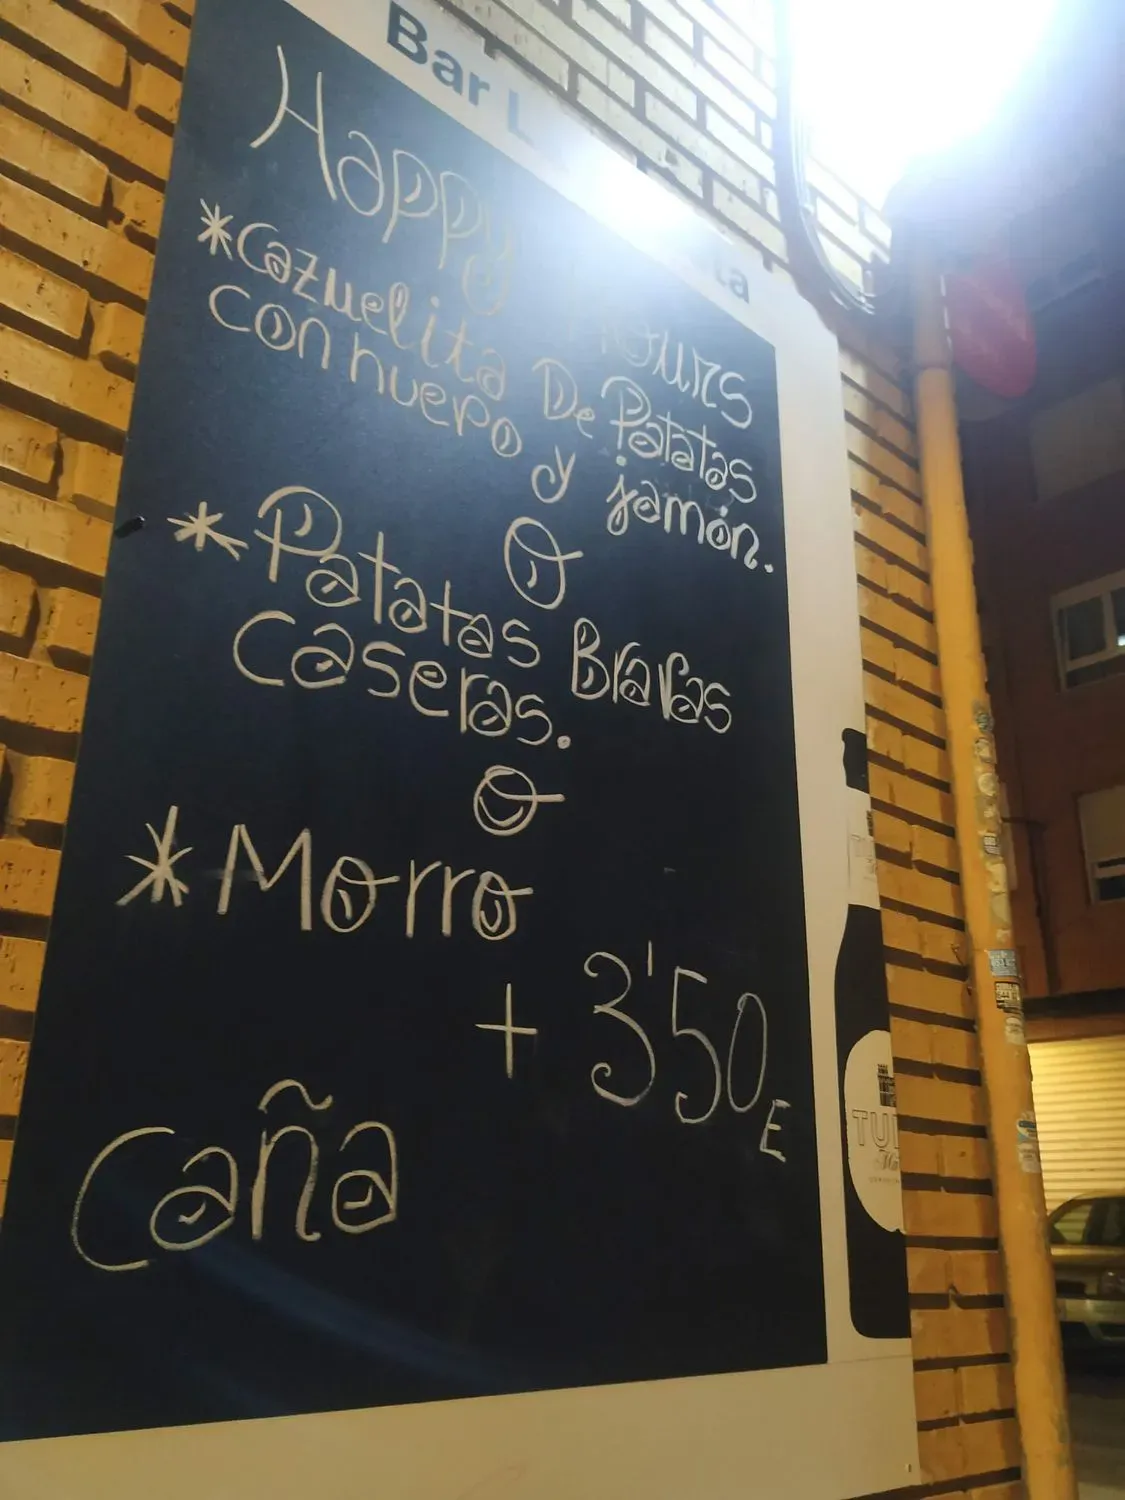 Bar L
ta
Happy Hours
*Cazuelita De Patatas
con huevo y jamón.
O
*Patatas Bravas
caseras.
O
*Morro
+ 3'50E
Caña
TU